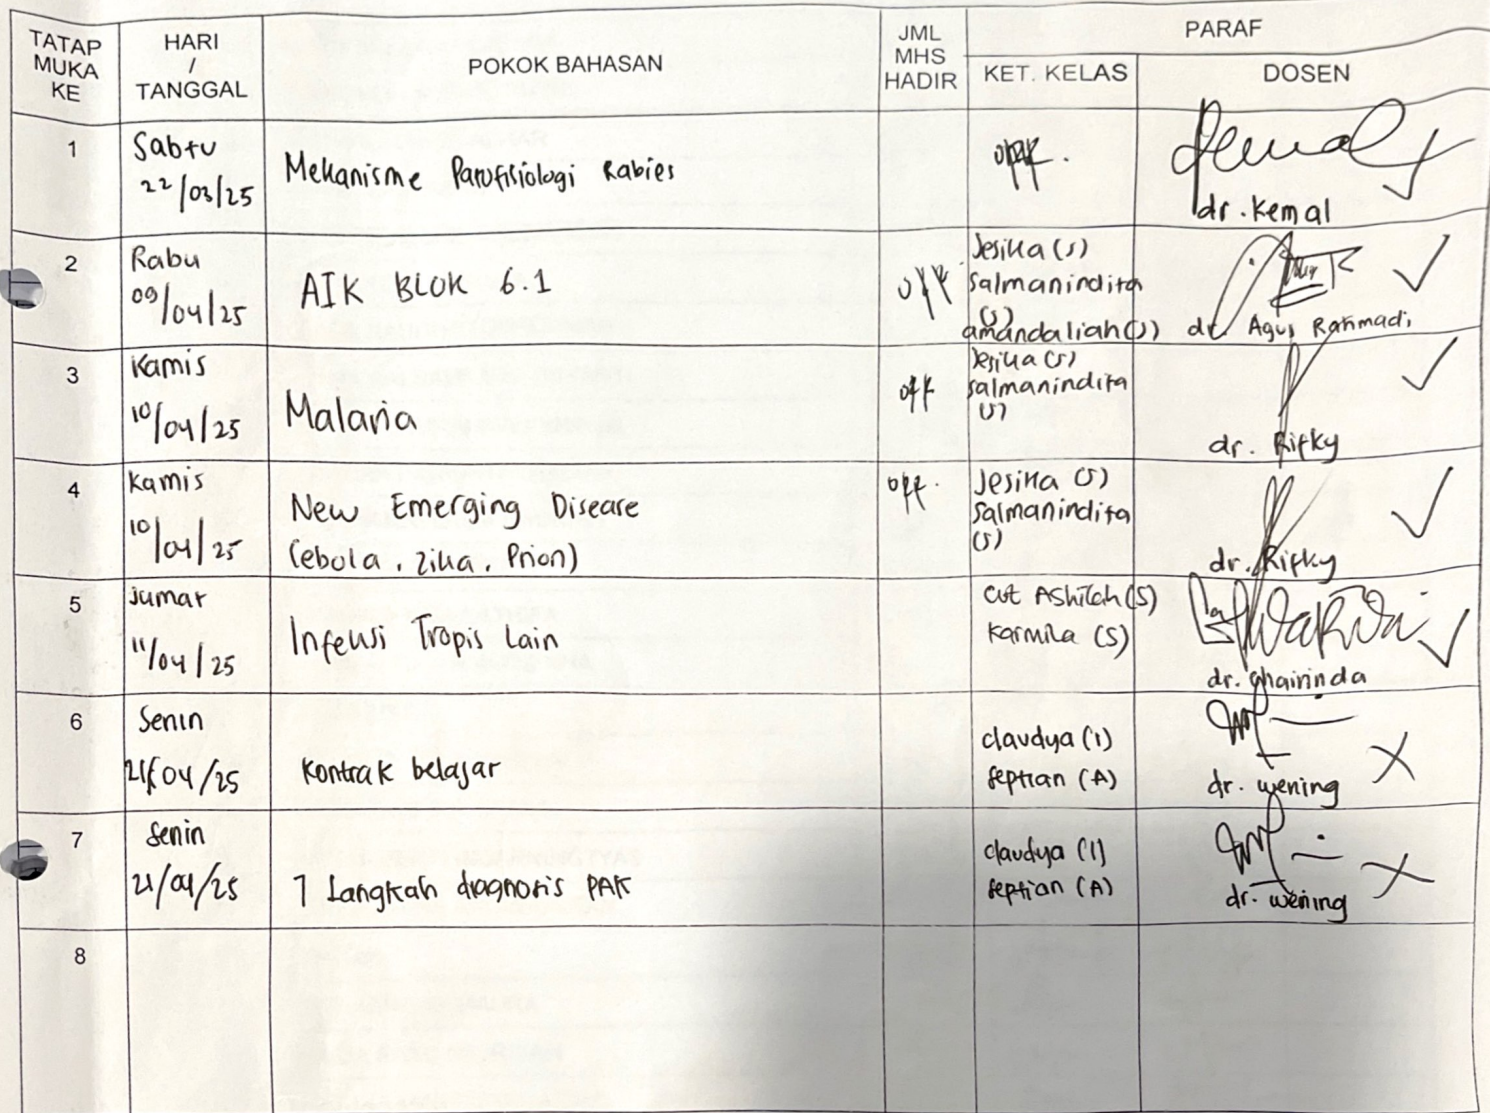 TATAP MUKA KE
HARI / TANGGAL
POKOK BAHASAN
JML MHS HADIR
PARAF
KET. KELAS
DOSEN
1
Sabtu
22/03/25
Mekanisme Patofisiologi Rabies
dr. Kemal
2
Rabu
09/04/25
AIK BLOK 6.1
off
Jesika (S)
Salmanindita
(S)
amandaliah (S)
dr. Agus Rahmadi
3
Kamis
10/04/25
Malaria
off
Jesika (S)
Salmanindita
(S)
dr. Rifky
4
Kamis
10/04/25
New Emerging Disease
(ebola, zika, Prion)
off.
Jesika (S)
Salmanindita
(S)
dr. Rifky
5
Jumat
11/04/25
Infeksi Tropis Lain
Cut Ashilah (S)
Karmila (S)
dr. Ghairinda
6
Senin
21/04/25
Kontrak belajar
claudya (1)
septian (A)
dr. wening
7
Senin
21/04/25
7 Langkah diagnosis PAK
claudya (1)
septian (A)
dr. wening
8